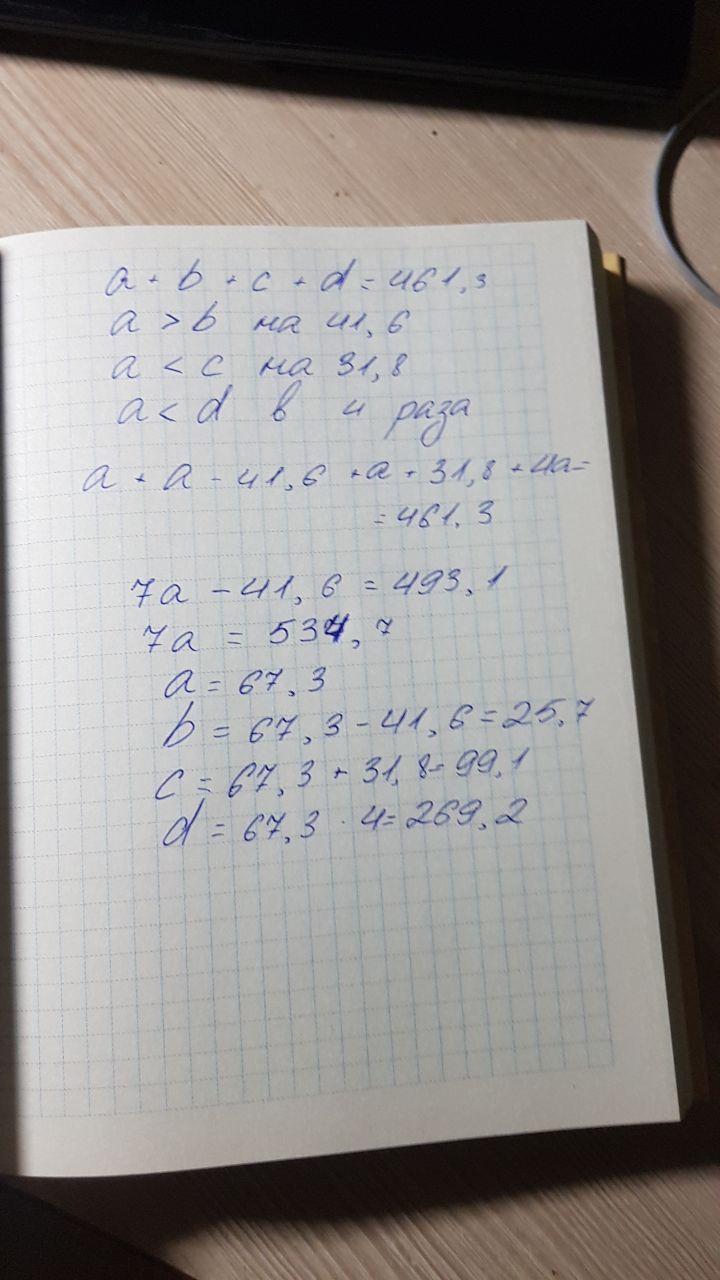 a + b + c + d = 461,3
a > b на 41,6
a < c на 31,8
a < d в 4 раза
a + a - 41,6 + a + 31,8 + 4a =
= 461,3
7a - 41,6 = 493,1
7a = 534,7
a = 67,3
b = 67,3 - 41,6 = 25,7
c = 67,3 + 31,8 = 99,1
d = 67,3 · 4 = 269,2